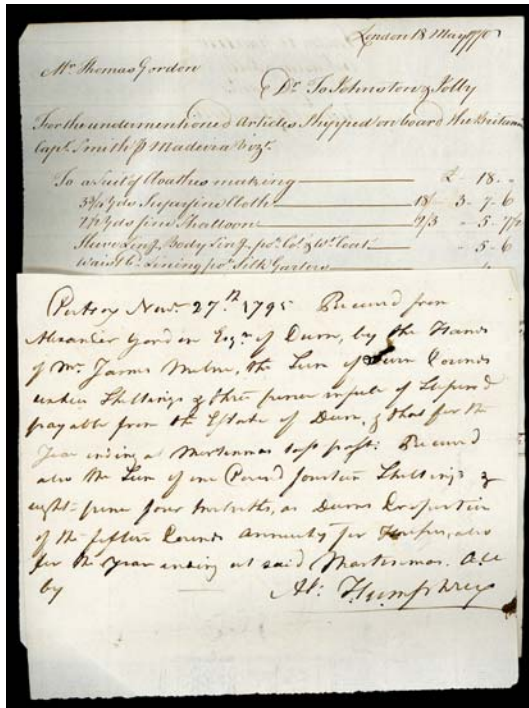 London 18 May 1770
Mr. Thomas Gordon
Dr. To Johnston & Jolly
For the undermentioned Articles Shipped on board the Britan
Capt. Smith Madeira Vizt.
To a Suit of Cloaths making £ - 18 -
3¾ Yds Superfine Cloth 18/ 3 - 7 - 6
2½ Yds fine Shalloon 2/3 - 5 - 7½
Sleeve Ling. Body Ling. Ct. & Wt. Coat - 5 - 6
Waist Lining Silk Garters
Portsoy Novr. 27th. 1795 Received from
Alexander Gordon Esqr. of Durn, by the Hands
of Mr. James Milne, the Sum of Pounds
Shillings & three pence of Stipend
payable from the Estate of Durn, & that for the
Year ending at Martinmas last past: Received
also the Sum of one Pound fourteen Shillings &
eight pence four twelfths, as Durns Proportion
of the fifteen Pounds Annuity for also
for the Year ending at said Martinmas. Acc
by Al: Humphrey